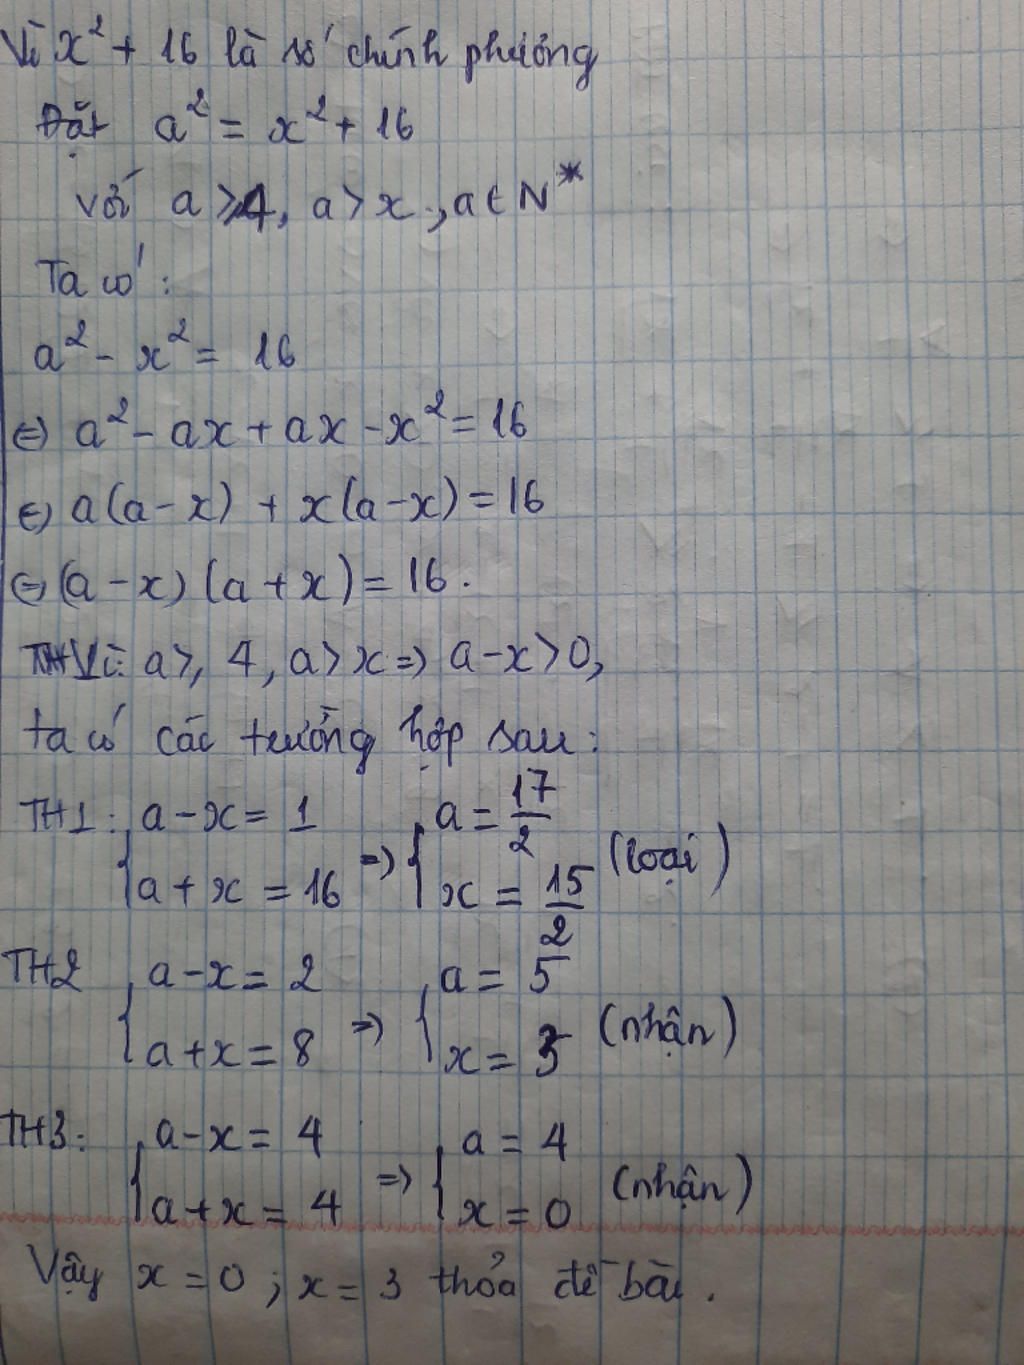 Vì x² + 16 là số chính phương
Đặt a² = x² + 16
với a ≥ 4, a > x, a ∈ N*
Ta có:
a² - x² = 16
⇔ a² - ax + ax - x² = 16
⇔ a(a - x) + x(a - x) = 16
⇔ (a - x)(a + x) = 16.
Vì: a ≥ 4, a > x ⇒ a - x > 0,
ta có các trường hợp sau:
TH1: { a - x = 1 ⇒ { a = 17/2 (loại)
a + x = 16 x = 15/2
TH2 { a - x = 2 ⇒ { a = 5 (nhận)
a + x = 8 x = 3
TH3: { a - x = 4 ⇒ { a = 4 (nhận)
a + x = 4 x = 0
Vậy x = 0 ; x = 3 thỏa đề bài.